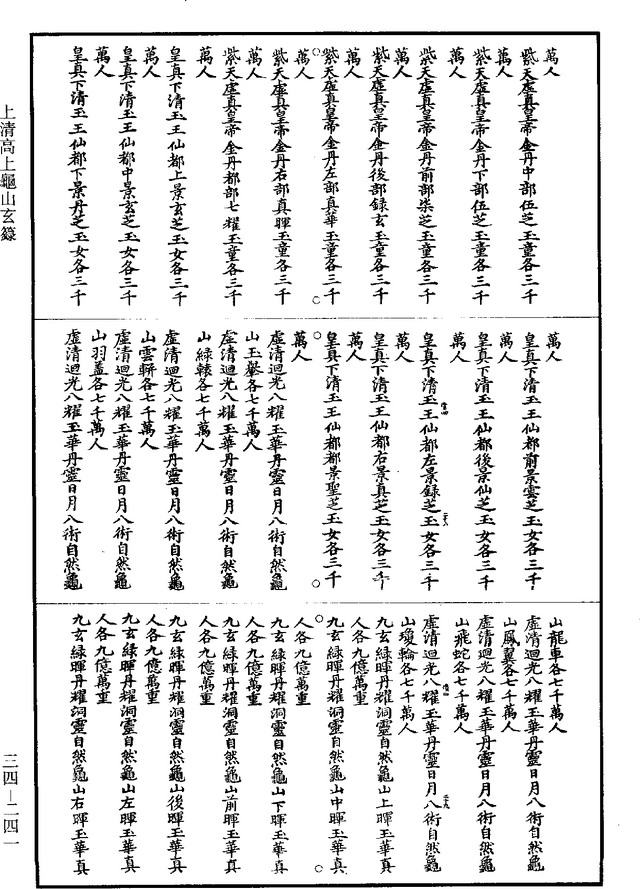 萬人
紫天虛真皇帝金丹中部伍芝玉童各三千
萬人
紫天虛真皇帝金丹下部伍芝玉童各三千
萬人
紫天虛真皇帝金丹前部柒芝玉童各三千
萬人
紫天虛真皇帝金丹後部録玄玉童各三千
萬人
紫天虛真皇帝金丹左部真華玉童各三千
萬人
紫天虛真皇帝金丹右部真暉玉童各三千
萬人
紫天虛真皇帝金丹都部七耀玉童各三千
萬人
皇真下清玉王仙都上景玄芝玉女各三千
萬人
皇真下清玉王仙都中景玄芝玉女各三千
萬人
皇真下清玉王仙都下景丹芝玉女各三千
萬人
皇真下清玉王仙都前景雲芝玉女各三千
萬人
皇真下清玉王仙都後景仙芝玉女各三千
萬人
皇真下清玉王仙都左景録芝玉女各三千
萬人
皇真下清玉王仙都右景真芝玉女各三千
萬人
皇真下清玉王仙都都景聖芝玉女各三千
萬人
虛清迴光八耀玉華丹靈日月八術自然龜
山玉轝各七千萬人
虛清迴光八耀玉華丹靈日月八術自然龜
山綠轅各七千萬人
虛清迴光八耀玉華丹靈日月八術自然龜
山雲輧各七千萬人
虛清迴光八耀玉華丹靈日月八術自然龜
山羽蓋各七千萬人
虛清迴光八耀玉華丹靈日月八術自然龜
山龍車各七千萬人
虛清迴光八耀玉華丹靈日月八術自然龜
山鳳翼各七千萬人
虛清迴光八耀玉華丹靈日月八術自然龜
山飛蛇各七千萬人
虛清迴光八耀玉華丹靈日月八術自然龜
山瓊輪各七千萬人
九玄綠暉丹耀洞靈自然龜山上暉玉華真
人各九億萬重
九玄綠暉丹耀洞靈自然龜山中暉玉華真
人各九億萬重
九玄綠暉丹耀洞靈自然龜山下暉玉華真
人各九億萬重
九玄綠暉丹耀洞靈自然龜山前暉玉華真
人各九億萬重
九玄綠暉丹耀洞靈自然龜山後暉玉華真
人各九億萬重
九玄綠暉丹耀洞靈自然龜山左暉玉華真
人各九億萬重
九玄綠暉丹耀洞靈自然龜山右暉玉華真
上清高上龜山玄籙
三四—二四一